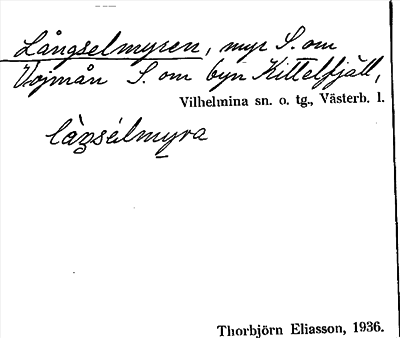 Långselmyren, myr S. om
Vojmån S. om byn Kittelfjäll,
Vilhelmina sn. o. tg., Västerb. l.
làgsélmyra
Thorbjörn Eliasson, 1936.